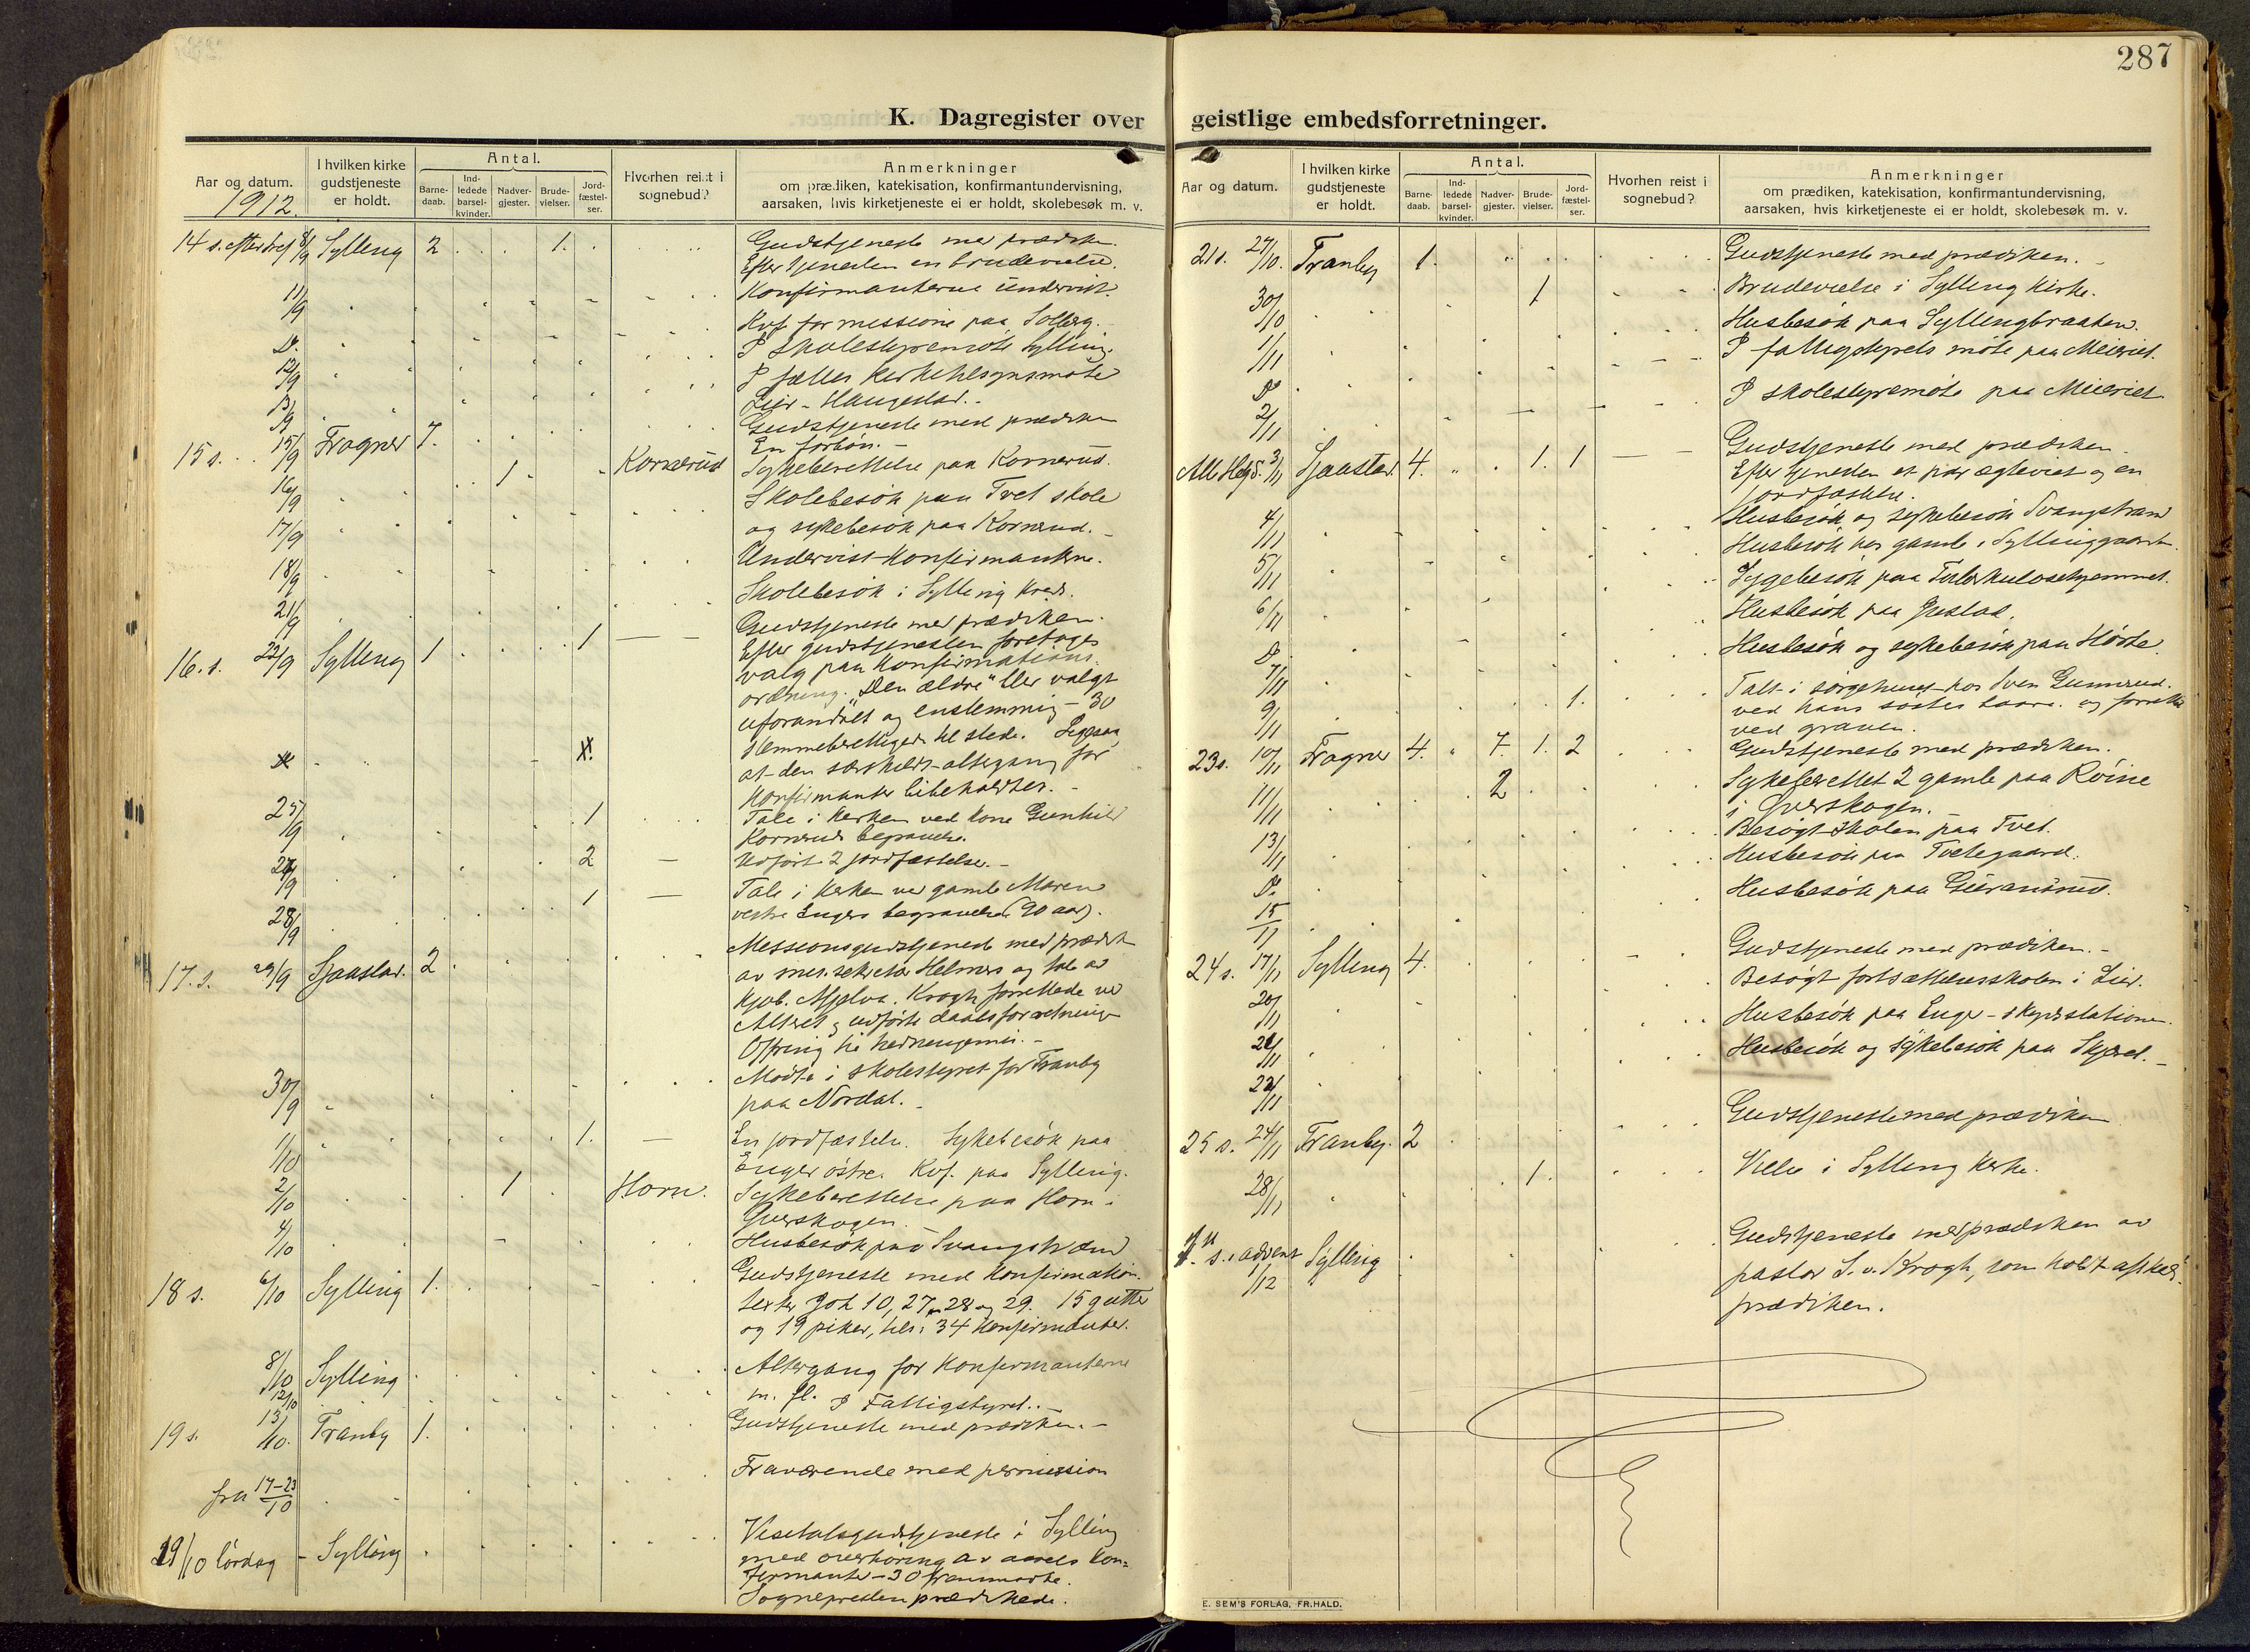 287
K. Dagregister over geistlige embedsforretninger.
Aar og datum.
1912.
I hvilken kirke gudstjeneste er holdt.
Antal.
Barne-daab.
Ind-ledede barsel-kvinder.
Nadver-gjester.
Brude-vielser.
Jord-fæstel-ser.
Hvorhen reist i sognebud?
Anmerkninger
om prædiken, katekisation, konfirmantundervisning,
aarsaken, hvis kirketjeneste ei er holdt, skolebesøk m. v.
14 s. efter tref 8/9 Sylling 2 1. Gudstjeneste med prædiken.
Efter tjenesten en brudevielse.
11/9 Konfirmanterne undervist.
Do. Kvf. for missionen paa Solberg.
12/9 I skolestyremöte Sylling.
13/9 I fælles kirketilsynsmöte
Lier - Haugestad.
15 s. 15/9 Frogner 7. Gudstjeneste med prædiken
En forbön. -
16/9 1 Kornerud Sykeberettelse paa Kornerud.
17/9 Skolebesök paa Tvet skole
og sykebesök paa Kornerud. -
18/9 Undervist konfirmanterne.
21/9 Skolebesök i Sylling kreds.
16. s. 22/9 Sylling 1 1 Gudstjeneste med prædiken.
Efter gudstjenesten foretoges
valg paa konfirmations-
ordning. "Den ældre" blev valgt
uforandret og enstemmig - 30
stemmeberettigede til stede. Ligesaa
at den særskilte altergang for
konfirmanter bibeholdtes. -
25/9 1 Tale i kirken ved kone Gunhild
Korneruds begravelse.
2 Utfört 2 jordfæstelser. -
28/9 1 Tale i kirken ved gamle Maren
vestre Engers begravelse (90 aar).
17. s. 29/9 Sjaastad. 2 Missionsgudstjeneste med prædik
av mis. sekretær Helmers og tale av
Kjøb. Mjelva. Krogh forrettede ved
Alteret og utförte daabsforretning
Ofring til hedningemis. -
30/9 Möte i skolestyret for Tranby
paa Nordal. -
1/10 1. En jordfæstelse. Sykebesök paa
Enger östre. Kvf. paa Sylling.
2/10 1 Horn. Sykeberettelse paa Horn i
Gverskogen.
4/10 Husbesök paa Svangstrand
18 s. 6/10 Sylling 1. Gudstjeneste med konfirmation.
Tekster Joh 10, 27, 28 og 29. 15 gutter
og 19 piker, tils: 34 konfirmanter.
8/10 Sylling Altergang for konfirmanterne
12/10 m. fl. I Fattigstyret. -
19 s. 13/10. Tranby 1. Gudstjeneste med prædiken. -
fra 17-23/10 Fraværende med permission
19/10 lördag - Sylling Visitatsgudstjeneste i Sylling
med overhöring av aarets kon-
firmanter - 30 fremmötte.
Sognepresten prædikede.
Aar og datum.
I hvilken kirke gudstjeneste er holdt.
Antal.
Barne-daab.
Ind-ledede barsel-kvinder.
Nadver-gjester.
Brude-vielser.
Jord-fæstel-ser.
Hvorhen reist i sognebud?
Anmerkninger
om prædiken, katekisation, konfirmantundervisning,
aarsaken, hvis kirketjeneste ei er holdt, skolebesøk m. v.
21 s. 27/10. Tranby 1. Gudstjeneste med prædiken. -
30/10 1 Brudevielse i Sylling kirke.
1/11 Husbesök paa Syllingbraaten.
Do I fattigstyrets möte paa Meieriet.
2/11 I skolestyremöte paa Meieriet
All. Helg. d. 3/11 Sjaastad. 4. 1. 1 Gudstjeneste med prædiken.
Efter tjenesten et par ægteviet og en
jordfæstelse.
4/11 Husbesök og sykebesök Svangstrand
5/11 Husbesök hos gamle i Syllinggaarden.
6/11 Sygebesök paa Tuberkulosehjemmet.
Do. Husbesök paa
7/11 Husbesök og sykebesök paa Hörte.
9/11 1. Tale i sörgehuset hos Sven Gunnerud.
ved hans sösters baare. og forrettet
ved graven.
23 s. 10/11 Frogner 4. 7. 1. 2 Gudstjeneste med prædiken.
11/11 2 Sykeberettet 2 gamle paa Röine
i Gverskogen.
13/11 Besögt skolen paa Tvet.
Do. Husbesök paa Tveitegaard.
15/11 Husbesök paa
24 s. 17/11 Sylling 4. Gudstjeneste med prædiken. -
20/11 Besögt fortsættelsesskolen i Lier.
21/11 Husbesök paa Enger - skydsstation.
22/11 Husbesök og sykebesök paa Skjæret. -
25 s. 24/11 Tranby. 2 Gudstjeneste med prædiken
28/11 1. Vielse i Sylling kirke.
1. s. i advent 1/12 Sylling Gudstjeneste med prædiken av
pastor S. v. Krogh, som holdt afskeds-
prædiken.
E. SEM'S FORLAG, FR.HALD.